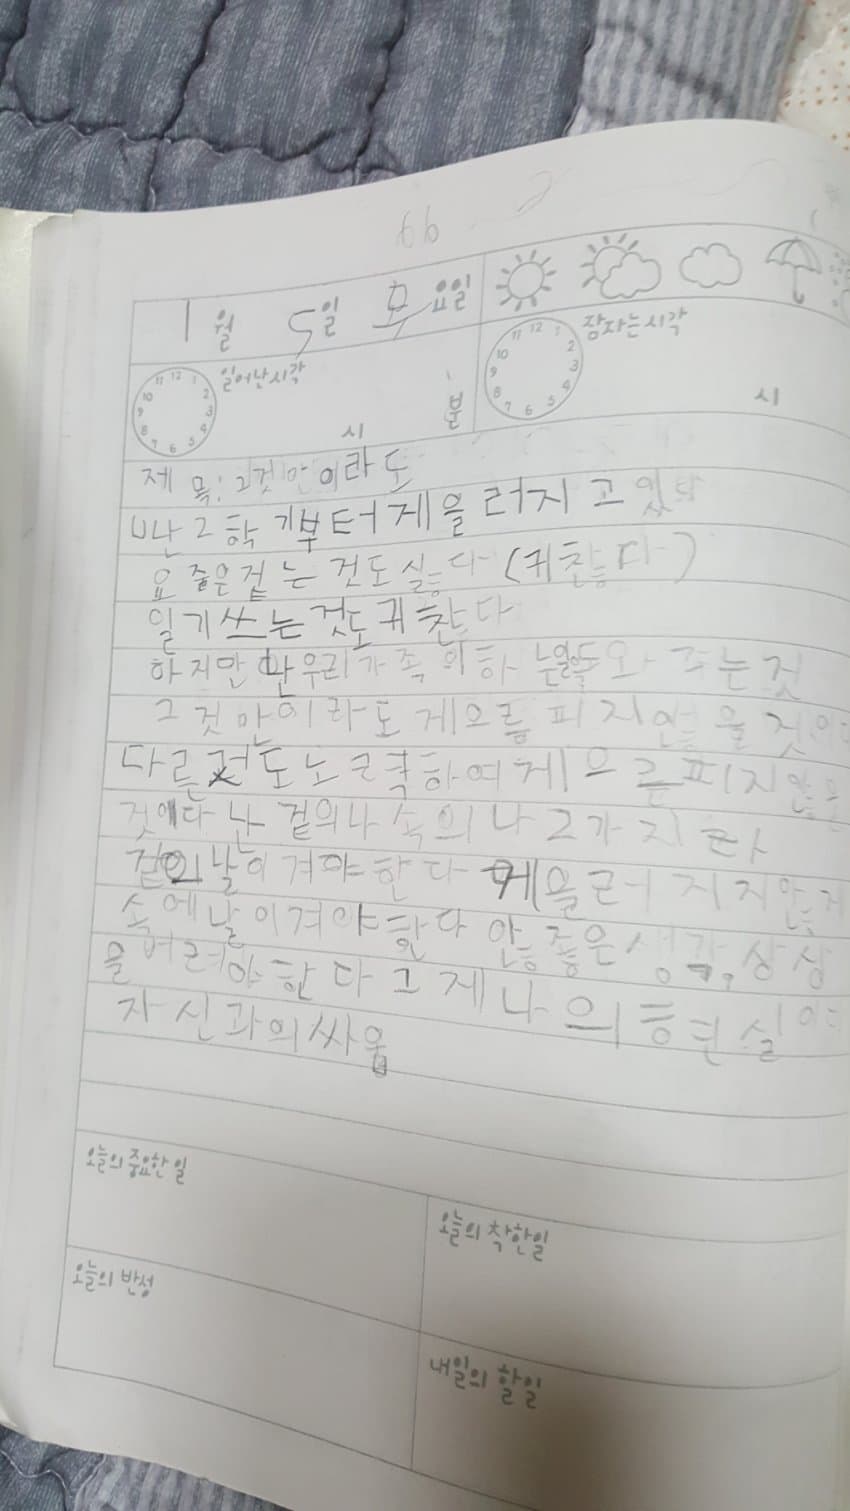 66
1월 5일 요일
일어난시각 잠자는시각
11 12 1 10 2 9 3 8 4 7 6 5
11 12 1 10 2 9 3 8 4 7 6 5
시 분 시
제 목: 그것만이라도
난 2학기부터 게을러지고 있다
요 줄은 걷는 것도 싫다 (귀찮다)
일기쓰는것도귀찮다
하지만 난 우리가족의 하는 주는것
그것만이라도 게으름피지않을것이다
다른것도노크륵하여게으른피지않을
것이다 난 겉의나 속의나 2가지라
겉의날이겨야한다 게을러지지안
속에날이겨야한다 안좋은생각,상상
을버려야한다 그게나의현실이다
자신과의싸움
오늘의 중요한 일
오늘의 착한일
오늘의 반성
내일의 할일